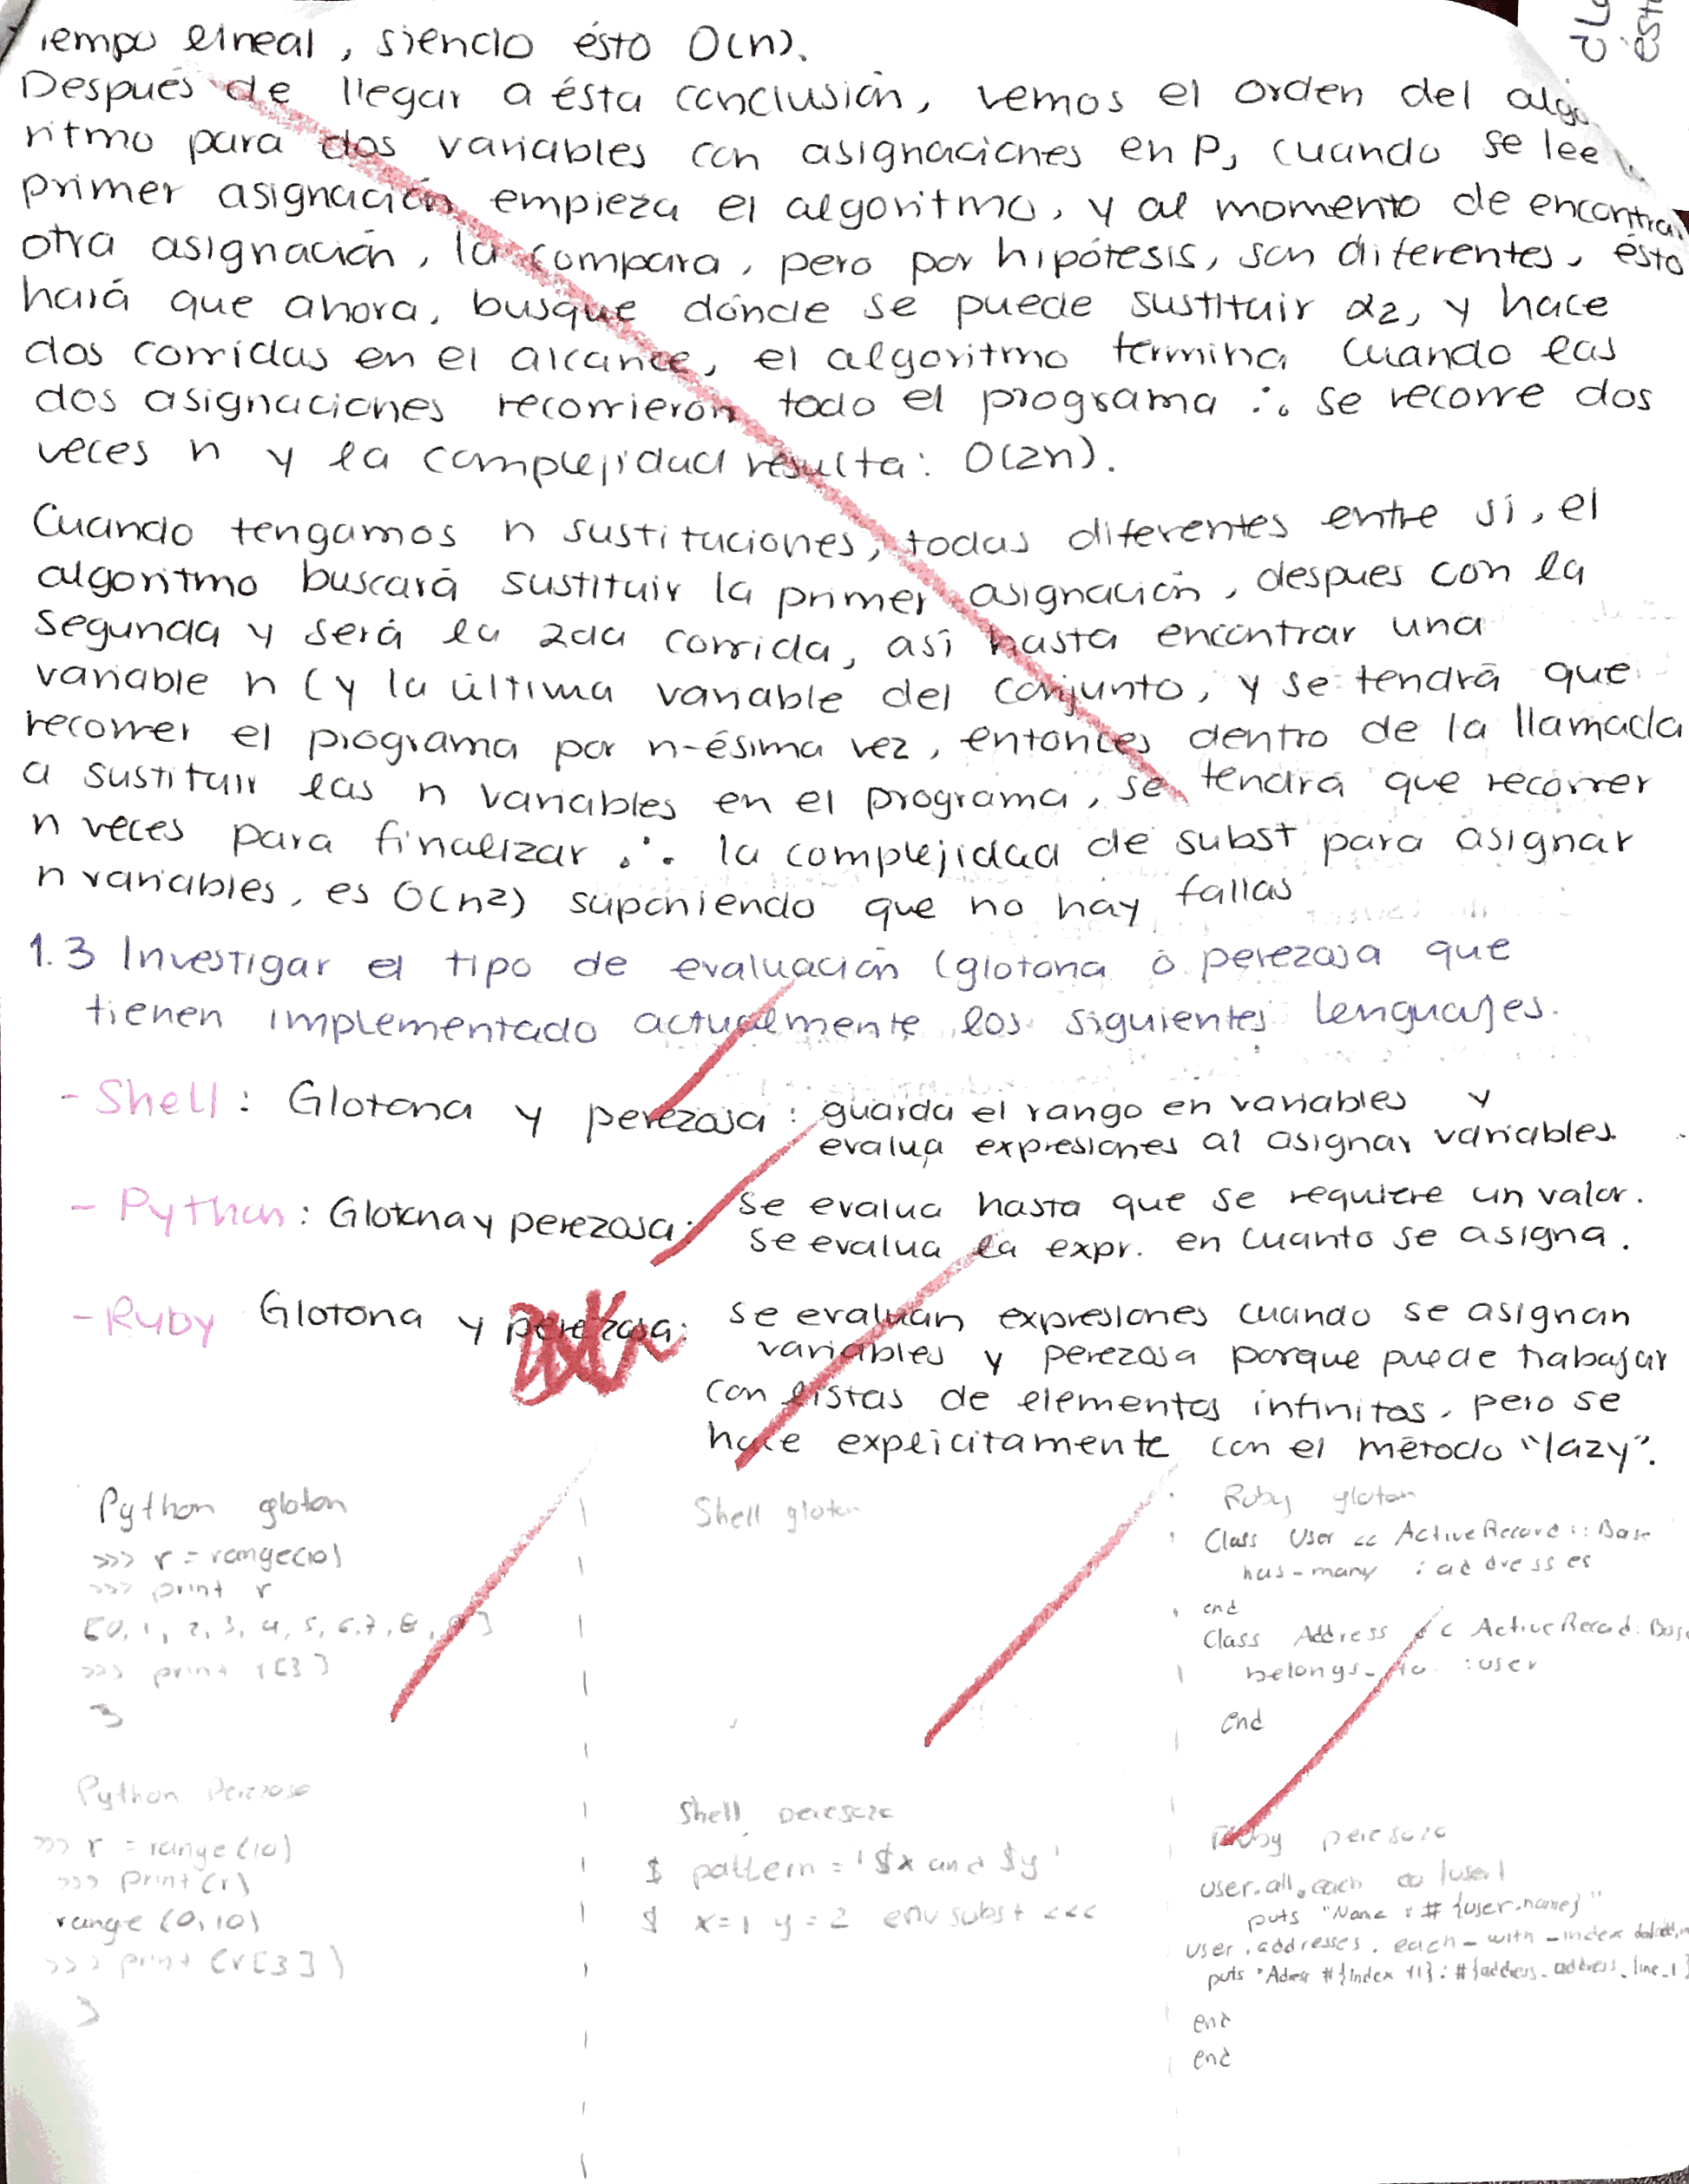 iempo lineal, siendo ésto O(n).
Después de llegar a ésta conclusión, vemos el orden del algo
ritmo para dos variables con asignaciones en P, cuando se lee
primer asignación empieza el algoritmo, y al momento de encontrar
otra asignación, la compara, pero por hipótesis, son diferentes, ésto
hará que ahora, busque dónde se puede sustituir α2, y hace
dos corridas en el alcance, el algoritmo termina cuando las
dos asignaciones recorrieron todo el programa ∴ se recorre dos
veces n y la complejidad resulta: O(2n).
Cuando tengamos n sustituciones, todas diferentes entre sí, el
algoritmo buscará sustituir la primer asignación, despues con la
segunda y será la 2da corrida, así hasta encontrar una
variable n (y la última variable del conjunto, y se tendrá que
recorrer el programa por n-ésima vez, entonces dentro de la llamada
a sustituir las n variables en el programa, se tendrá que recorrer
n veces para finalizar ∴ la complejidad de subst para asignar
n variables, es O(n²) suponiendo que no hay fallas
1.3 Investigar el tipo de evaluación (glotona o perezosa que
tienen implementado actualmente los siguientes lenguajes.
- Shell: Glotona y perezosa: guarda el rango en variables y
evalua expresiones al asignar variables.
- Python: Glotona y perezosa: se evalua hasta que se requiere un valor.
Se evalua la expr. en cuanto se asigna.
- Ruby Glotona y perezosa: se evaluan expresiones cuando se asignan
variables y perezosa porque puede trabajar
con listas de elementos infinitos, pero se
hace explicitamente con el método "lazy".
Python gloton
>>> r = range(10)
>>> print r
[0, 1, 2, 3, 4, 5, 6, 7, 8, 9]
>>> print r[3]
3
Shell gloton
Ruby gloton
Class User << ActiveRecord::Base
has-many :addresses
end
Class Address << ActiveRecord::Base
belongs-to :user
end
Python Perezoso
>>> r = range(10)
>>> print(r)
range (0,10)
>>> print (r[3])
3
Shell peresozo
$ pattern = '$x and $y'
$ x=1 y=2 envsubst <<<
Ruby peresozo
user.all.each do |user|
puts "Name : #{user.name}"
user.addresses.each-with-index
puts #{index +1}: #{address.address_line_1}
end
end